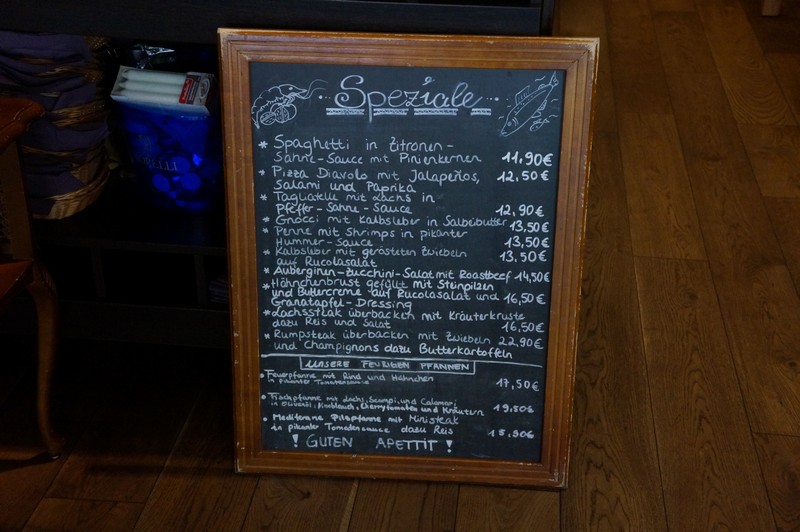 Speziale
* Spaghetti in Zitronen-
Sahne-Sauce mit Pinienkernen 11,90€
* Pizza Diavolo mit Jalapeños, 12,50€
Salami und Paprika
* Tagliatelle mit Lachs in
Pfeffer-Sahne-Sauce 12,90€
* Gnocci mit Kalbsleber in Salbeibutter 13,50€
* Penne mit Shrimps in pikanter
Hummer-Sauce 13,50€
* Kalbsleber mit gerösteten Zwiebeln 13,50€
auf Rucolasalat
* Auberginen-Zucchini-Salat mit Roastbeef 14,50€
* Hähnchenbrust gefüllt mit Steinpilzen
und Buttercreme auf Rucolasalat und 16,50€
Granatapfel-Dressing
* Lachssteak überbacken mit Kräuterkruste
dazu Reis und Salat 16,50€
* Rumpsteak überbacken mit Zwiebeln 22,90€
und Champignons dazu Butterkartoffeln
UNSERE FEURIGEN PFANNEN
• Feuerpfanne mit Rind und Hähnchen
in pikanter Tomatensauce 17,50€
• Fischpfanne mit Lachs, Scampi, und Calamari
in Olivenöl, Knoblauch, Cherrytomaten und Kräutern 19,50€
• Mediterane Pilzpfanne mit Ministeak
in pikanter Tomatensauce dazu Reis 15,90€
! GUTEN APETTIT !